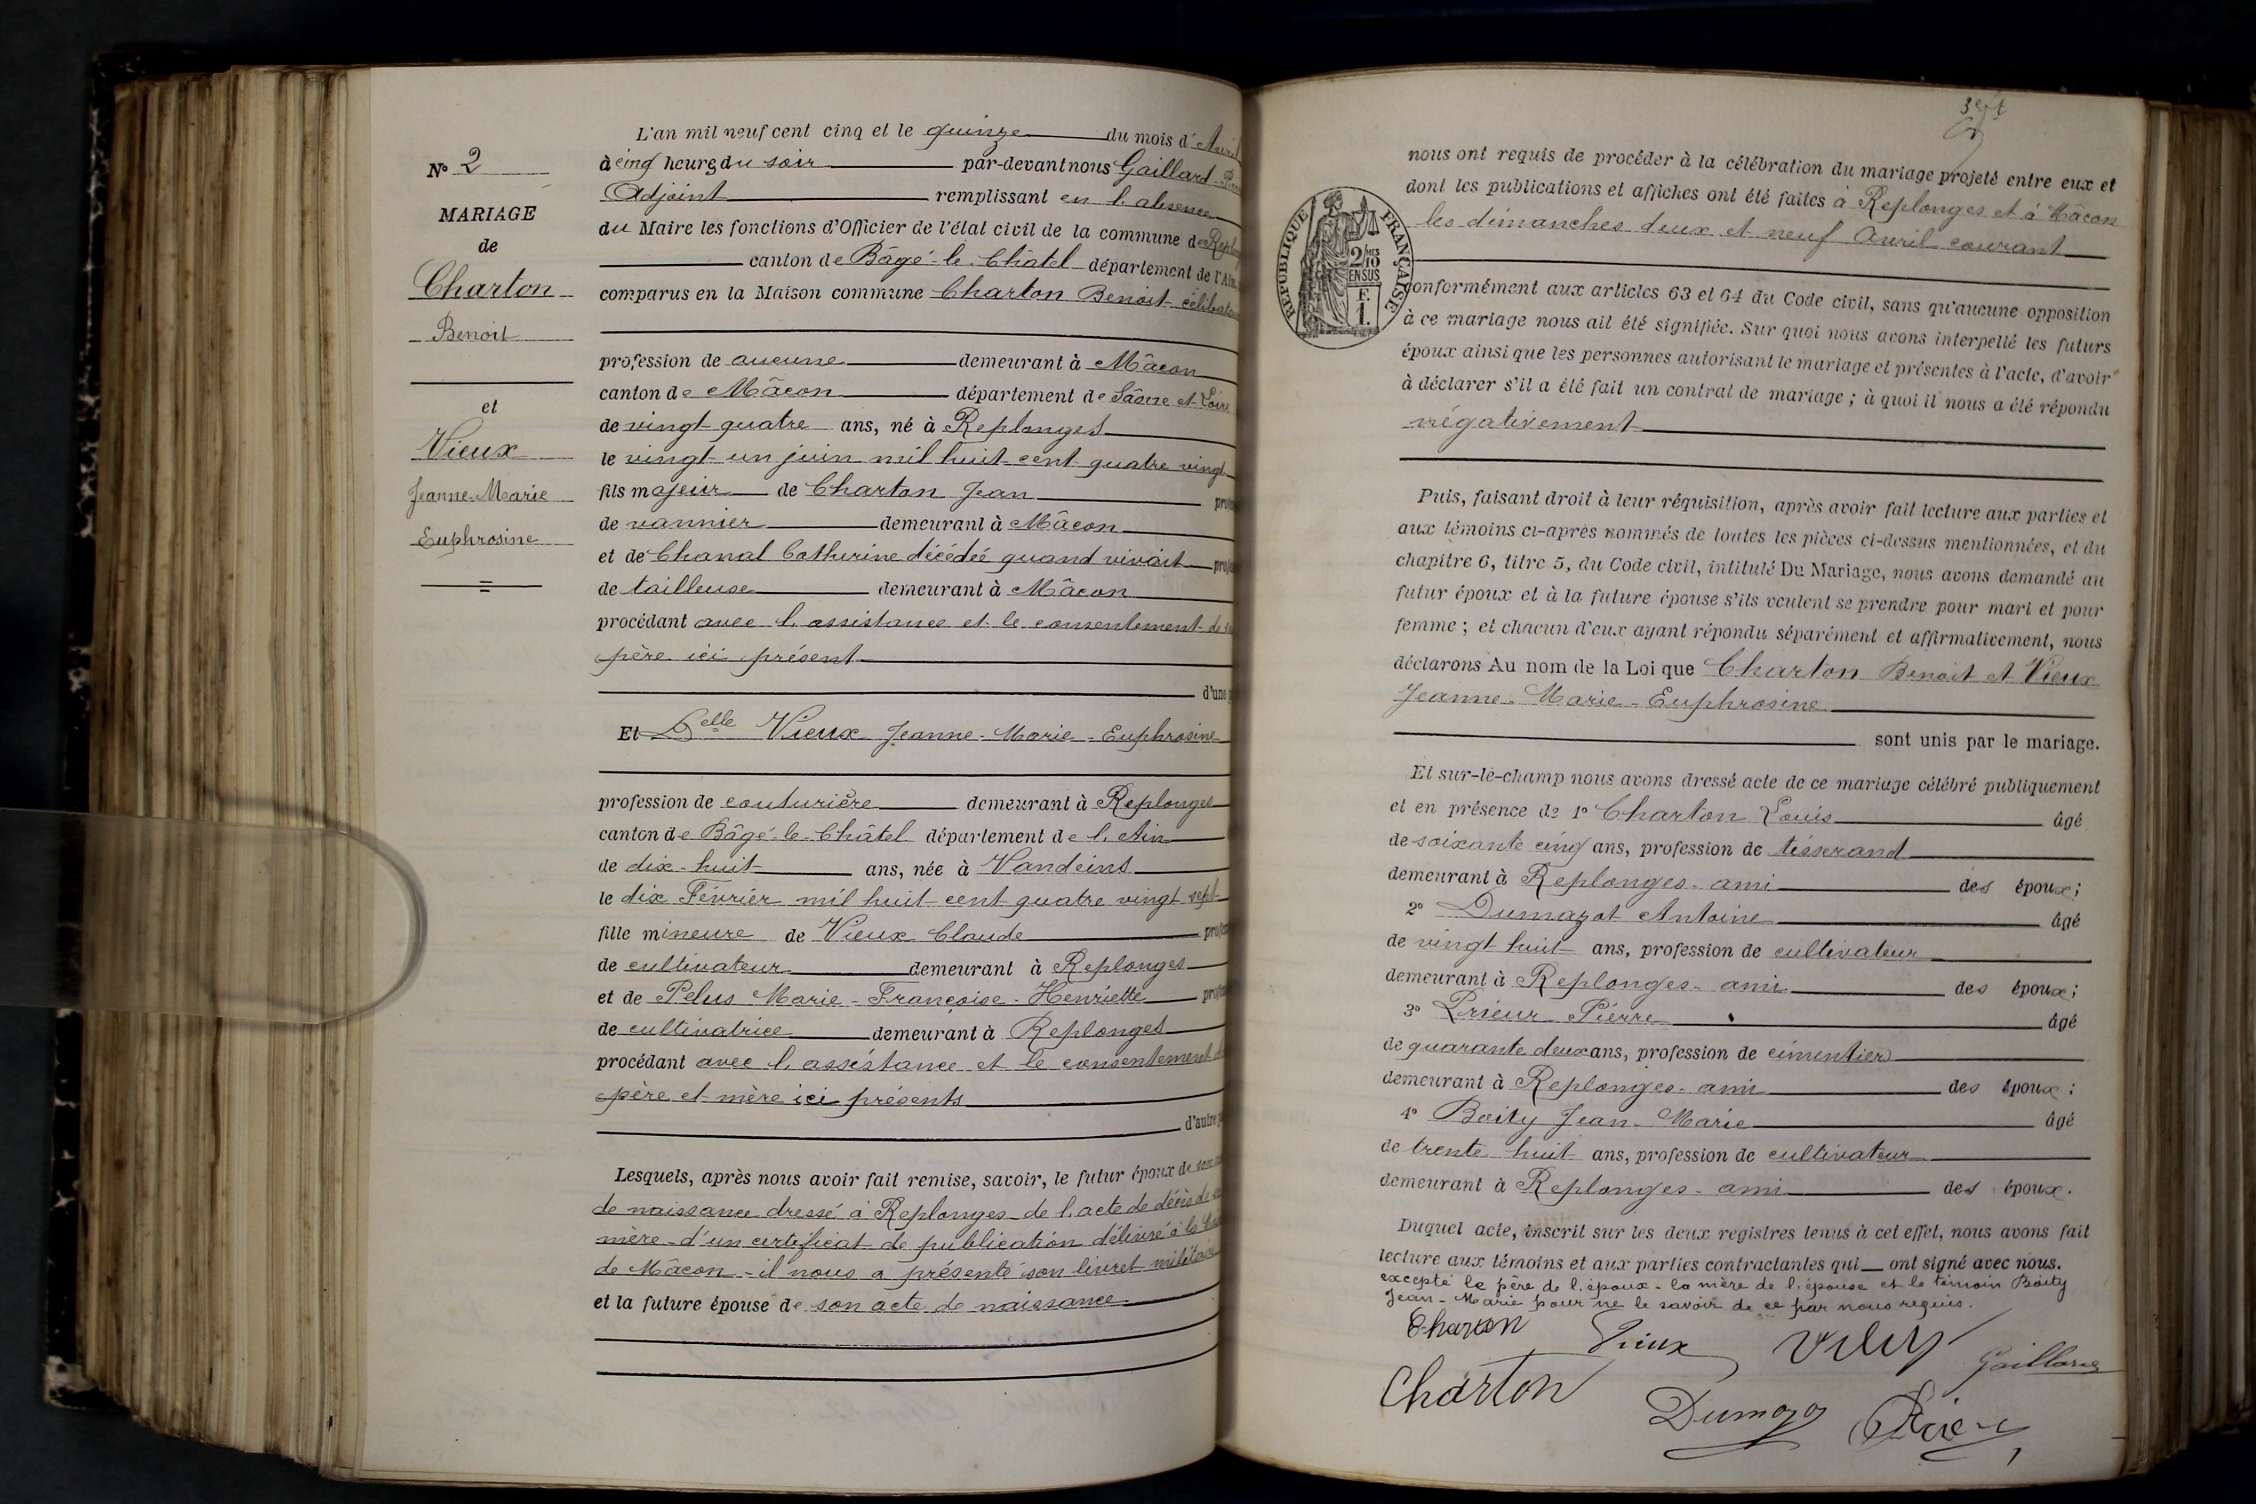 N° 2
MARIAGE
de
Charton
Benoit
et
Vieux
Jeanne-Marie
Euphrosine
L'an mil neuf cent cinq et le quinze du mois d'Avril
à cinq heures du soir par-devant nous Gaillard
Adjoint remplissant en l'absence
du Maire les fonctions d'Officier de l'état civil de la commune de
canton de Bâgé-le-Châtel département de l'Ain
comparus en la Maison commune Charton Benoit célibataire
profession de aucune demeurant à Mâcon
canton de Mâcon département de Sâone et Loire
de vingt quatre ans, né à Replonges
le vingt un juin mil huit cent quatre vingt
fils majeur de Charton Jean
de vannier demeurant à Mâcon
et de Chanal Catherine décédée quand vivait
de tailleuse demeurant à Mâcon
procédant avec l'assistance et le consentement de
père ici présent
d'une
Et Delle Vieux Jeanne-Marie-Euphrosine
profession de couturière demeurant à Replonges
canton de Bâgé-le-Châtel département de l'Ain
de dix-huit ans, née à Vandeins
le dix Février mil huit cent quatre vingt sept
fille mineure de Vieux Claude
de cultivateur demeurant à Replonges
et de Pelus Marie-Françoise-Henriette
de cultivatrice demeurant à Replonges
procédant avec l'assistance et le consentement
père et mère ici présents
d'autre
Lesquels, après nous avoir fait remise, savoir, le futur époux de son
de naissance dressé à Replonges de l'acte de décès de
mère - d'un certificat de publication délivré à la
de Mâcon - il nous a présenté son livret militaire
et la future épouse de son acte de naissance
nous ont requis de procéder à la célébration du mariage projeté entre eux et
dont les publications et affiches ont été faites à Replonges et à Mâcon
les dimanches deux et neuf Avril courant
RÉPUBLIQUE FRANÇAISE
2/10
EN SUS
F.
1.
conformément aux articles 63 et 64 du Code civil, sans qu'aucune opposition
à ce mariage nous ait été signifiée. Sur quoi nous avons interpellé les futurs
époux ainsi que les personnes autorisant le mariage et présentes à l'acte, d'avoir
à déclarer s'il a été fait un contrat de mariage ; à quoi il nous a été répondu
négativement
Puis, faisant droit à leur réquisition, après avoir fait lecture aux parties et
aux témoins ci-après nommés de toutes les pièces ci-dessus mentionnées, et du
chapitre 6, titre 5, du Code civil, intitulé Du Mariage, nous avons demandé au
futur époux et à la future épouse s'ils veulent se prendre pour mari et pour
femme ; et chacun d'eux ayant répondu séparément et affirmativement, nous
déclarons Au nom de la Loi que Charton Benoit et Vieux
Jeanne-Marie-Euphrosine
sont unis par le mariage.
Et sur-le-champ nous avons dressé acte de ce mariage célébré publiquement
et en présence de 1° Charton Louis âgé
de soixante cinq ans, profession de tisserand
demeurant à Replonges - ami des époux ;
2° Dumazot Antoine âgé
de vingt huit ans, profession de cultivateur
demeurant à Replonges - ami des époux ;
3° Prieur Pierre âgé
de quarante deux ans, profession de cimentier
demeurant à Replonges - ami des époux ;
4° Boity Jean-Marie âgé
de trente huit ans, profession de cultivateur
demeurant à Replonges - ami des époux.
Duquel acte, inscrit sur les deux registres tenus à cet effet, nous avons fait
lecture aux témoins et aux parties contractantes qui ont signé avec nous.
excepté le père de l'époux - la mère de l'épouse et le témoin Boity
Jean-Marie pour ne le savoir de ce par nous requis.
Charton Vieux Gaillard
Charton Dumazo